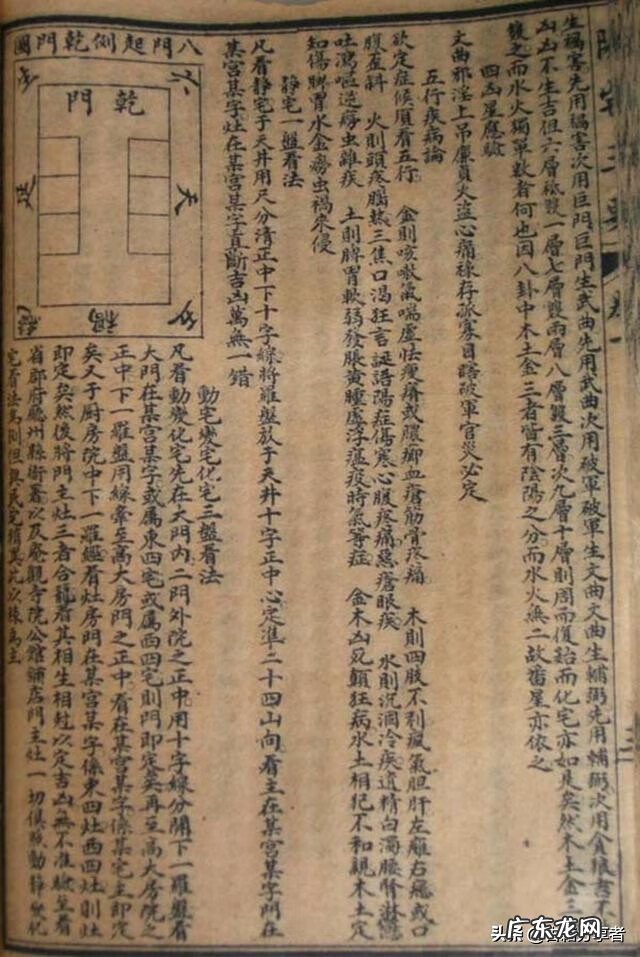 生禍害先用禍害次用巨門巨門生武曲先用武曲次用破軍破軍生文曲文曲生輔弼先用輔弼次用貪狼吉不
凶凶不生吉但六層 一層七層雙兩層八層雙三層次九層十層則週而復始而化宅亦如是矣然木土金三
雙之而水火獨單數者何也因八卦中木土金三者皆有陰陽之分而水火無二故番星亦依之
四凶星應驗
文曲邪淫上吊廉貞火盜心痛祿存孤寡目 破軍官災必定
五行疾病論
欲定症候順看五行 金則咳嗽氣喘虛怯瘦癆或膿 血瘡筋骨疼痛 木則四肢不利瘋氣胆肝左癱右瘓或口
腹歪斜 火則頭疼腦熱三焦口渴狂言誕語陽症傷寒心腹疼痛惡瘡眼疾 水則沉涸冷疾遺精白濁腰腎淋
吐瀉嘔逆癆虫雜疾 土則脾胃軟弱發脹黃腫虛浮瘟疫時氣等症 金木凶死顛狂病水土相犯不和親木土定
知傷脾胃水金癆虫禍來侵
静宅一盤看法
凡看静宅于天井用尺分清正中下十字線將羅盤放于天井十字正中心定準二十四山向看主在某宮某字門在
某宮某字灶在某宮某字直斷吉凶萬無一錯
動宅變宅化宅三盤看法
凡看動變化宅先在大門內二門外院之正中用十字線分開下一羅盤看
大門在某宮某字或屬東四宅或屬西四宅則門即定矣再至高大房院之
正中下一羅盤用線牽至高大房門之正中看在某宮某字係某宅主即定
矣又于厨房院中下一羅經看灶房門在某宮某字係東四灶西四灶則灶
即定矣然後將門主灶三者合龍看其相生相尅以定吉凶無不准驗至看
省郡府廳州縣衙署以及庵觀寺院公館鋪店門主灶一切俱照動静變化
宅看法為例但與民宅稍異
八門起例乾門圖
乾門
六
天
五
禍
广东龙网
头条
分享者